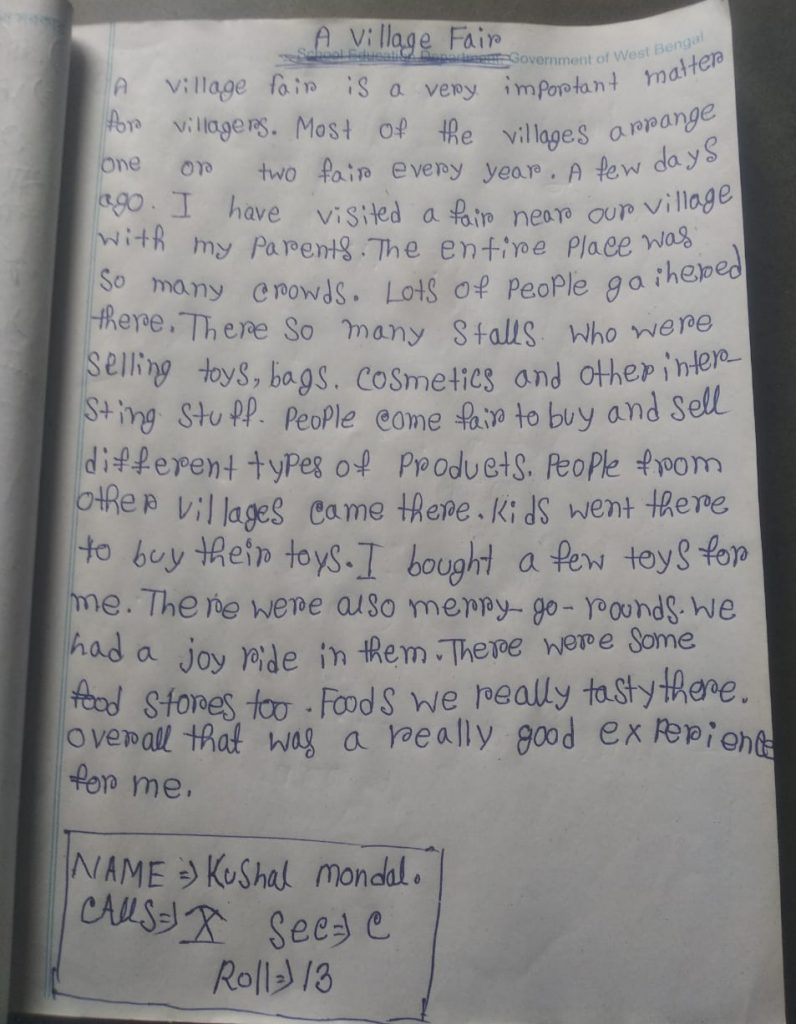 A Village Fair
School Education Department Government of West Bengal
A village fair is a very important matter
for villagers. Most of the villages arrange
one or two fair every year. A few days
ago. I have visited a fair near our village
with my Parents. The entire Place was
so many crowds. Lots of People gaihered
there. There so many stalls who were
selling toys, bags. cosmetics and other inter-
sting stuff. People come fair to buy and sell
different types of Products. People from
other villages came there. Kids went there
to buy their toys. I bought a few toys for
me. There were also merry-go-rounds. we
had a joy ride in them. There were some
food stores too. Foods we really tasty there.
overall that was a really good experience
for me.
NAME => Kushal mondal.
CAllS => X Sec => C
Roll => 13